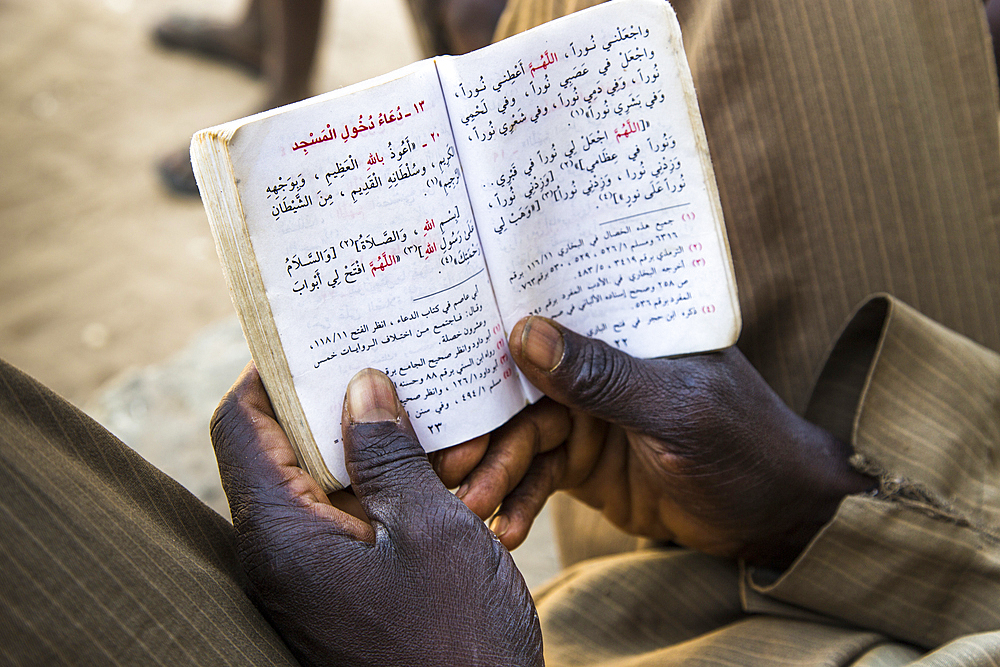 واجْعَلْنـي نُـوراً ،
واجْعَلْ في عَصَبِي نُوراً ، وفي لَحْمِي
اللَّهُمَّ أَعْطِنـي نُـوراً ،
نُوراً ، وَفي دَمِي نُوراً ، وفي شَعْرِي نُوراً ،
وَفي بَشَرِي نُوراً»(١)
«[اللَّهُمَّ اجْعَلْ لِي نُوراً في قَبْرِي . .
وَنُوراً في عِظَامِي](٢) [وَزِدْنِي نُوراً ،
وَزِدْنِي نُوراً ، وَزِدْنِي نُوراً](٣) [«وَهَبْ لِي
نُوراً عَلَى نُورٍ»](٤)
(١) جميع هذه الخصال في البخاري ١١٦/١١ برقم
٦٣١٦ ومسلم ٥٢٦/١ ، ٥٢٩ ، ٥٣٠ برقم ٧٦٣
(٢) الترمذي برقم ٣٤١٩ ، ٤٨٣/٥
(٣) أخرجه البخاري في الأدب المفرد برقم
ص ٢٥٨ وصحح إسناده الألباني في
المفرد برقم ٥٣٦
(٤) ذكره ابن حجر في فتح
٢٢
١٣ ـ دُعَاءُ دُخُولِ الْمَسْجِدِ
٢٠ ـ «أَعُوذُ بِاللهِ الْعَظِيمِ ، وَبِوَجْهِهِ
الكَرِيم ، وَسُلْطَانِهِ الْقَدِيمِ ، مِنَ الشَّيْطَانِ
الرَّجِيم»(١)
[بِسْمِ اللهِ ، وَالصَّلاَةُ](٢) [وَالسَّلاَمُ
عَلَى رَسُولِ اللهِ](٣) «اللَّهُمَّ افْتَحْ لِي أَبْوَابَ
رَحْمَتِكَ»(٤)
أبي عاصم في كتاب الدعاء ، انظر الفتح ١١٨/١١ ،
وقال: فـاجتمـع مـن اختـلاف الـروايـات خمس
وعشرون خصلة .
(١) أبو داود وانظر صحيح الجامع برقم
(٢) رواه ابن السني برقم ٨٨ وحسنه
(٣) أبو داود ١٢٦/١ ، وانظر صحيح
(٤) مسلم ٤٩٤/١ ، وفي سنن
٢٣